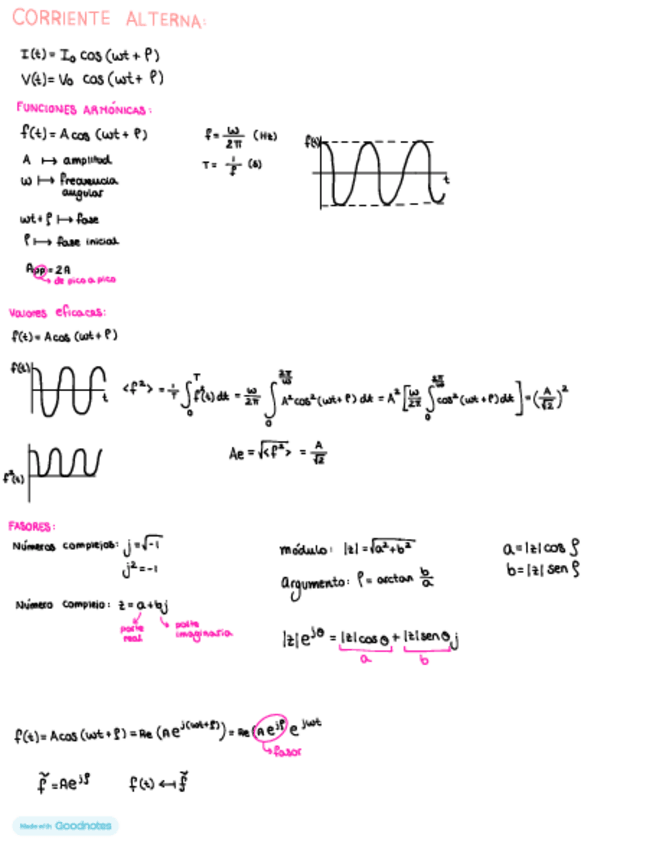 CORRIENTE ALTERNA:
I(t) = I₀ cos (wt + φ)
V(t) = V₀ cos (wt + φ)
FUNCIONES ARMÓNICAS:
f(t) = A cos (wt + φ)
f = w/2π (Hz)
T = 1/f (s)
f(t)
t
A ↦ amplitud
w ↦ frecuencia
angular
wt + φ ↦ fase
φ ↦ fase inicial
App = 2A
de pico a pico
Valores eficaces:
f(t) = A cos (wt + φ)
f(t)
t
<f²> = 1/T ∫₀ᵀ f²(t) dt = w/2π ∫₀^(2π/w) A² cos² (wt + φ) dt = A² [w/2π ∫₀^(2π/w) cos² (wt + φ) dt] = (A/√2)²
f²(t)
Ae = √<f²> = A/√2
FASORES:
Números complejos: j = √-1
j² = -1
módulo: |z| = √a² + b²
argumento: φ = arctan b/a
a = |z| cos φ
b = |z| sen φ
Número complejo: z = a + bj
parte real
parte imaginaria
|z| e^jθ = |z| cos θ + |z| sen θ j
a
b
f(t) = A cos (wt + φ) = Re (A e^j(wt+φ)) = Re (A e^jφ) e^jwt
fasor
f̃ = A e^jφ
f(t) ↔ f̃
Made with Goodnotes